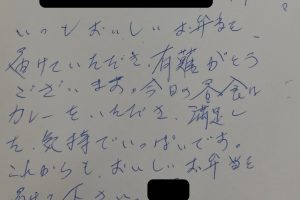 いつもおいしいお弁当を
届けていただき、有難がとう
ございます。今日の昼食は
カレーをいただき、満足し
た、気持でいっぱいです。
これからも、おいしいお弁当を
届けて下さい。